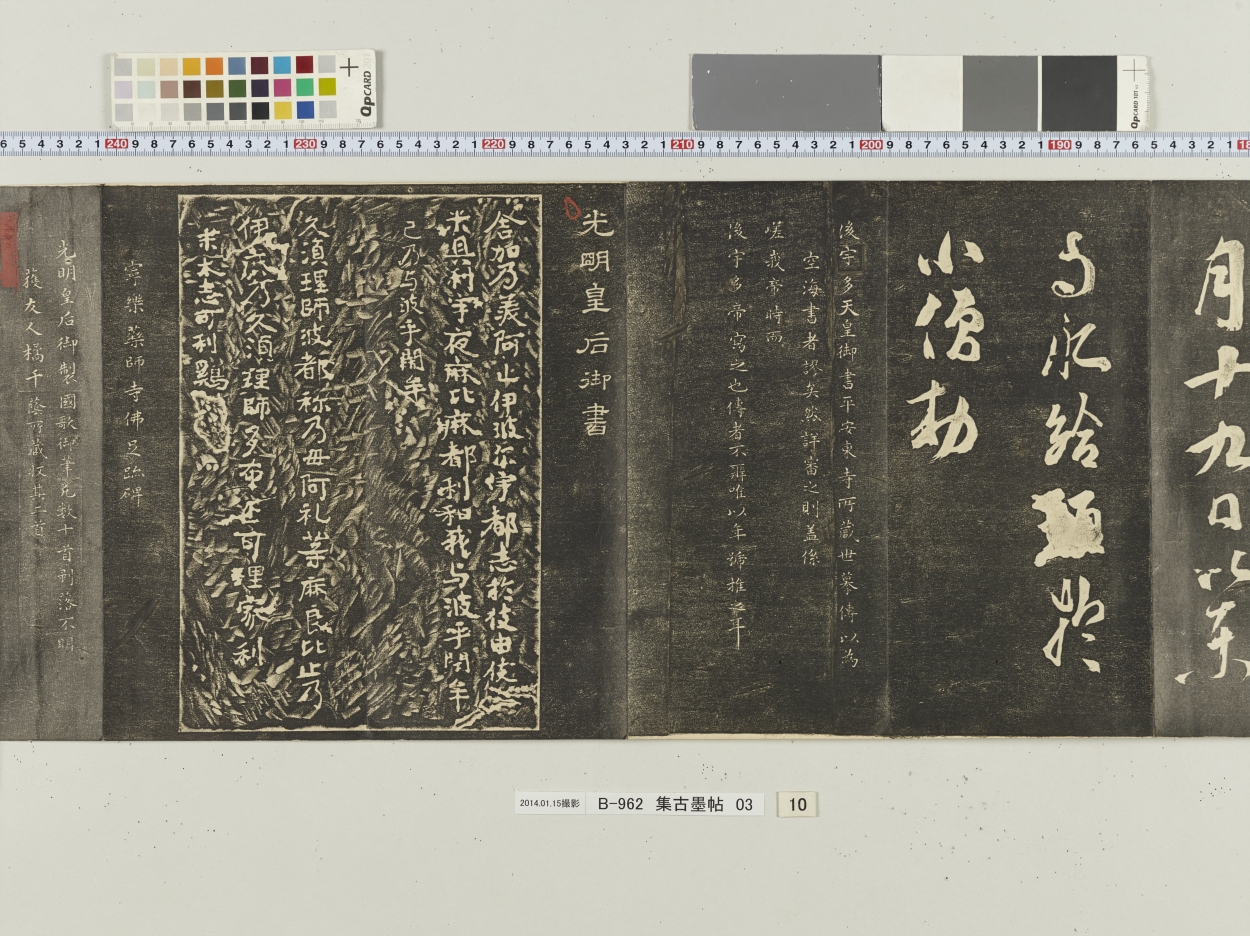 月十九日以某
与永給預於
小僧勅
後宇多天皇御書平安東寺所蔵世摹傳以為
空海書者謬矣然詳審之則蓋係
嵯峩帝時而
後宇多帝寫之也傳者不辨唯以年號推之耳
光明皇后御書
舎加乃美阿止伊波尓宇都志於伎由伎
米具利半夜麻比麻都利和我与波乎閇牟
己乃与波乎閇牟
久須理師波都祢乃母阿礼等麻良比止乃
伊麻乃久須理師多布止可理家利
米太志可利鶏利
寧樂藥師寺佛足跡碑
光明皇后御製國歌御筆凡数十首剥落不明
友人橘千蔭所蔵収其二首
QPCARD
QPCARD 101
6 5 4 3 2 1 240 9 8 7 6 5 4 3 2 1 230 9 8 7 6 5 4 3 2 1 220 9 8 7 6 5 4 3 2 1 210 9 8 7 6 5 4 3 2 1 200 9 8 7 6 5 4 3 2 1 190 9 8 7 6 5 4 3 2 1
2014.01.15撮影 B-962 集古墨帖 03 10